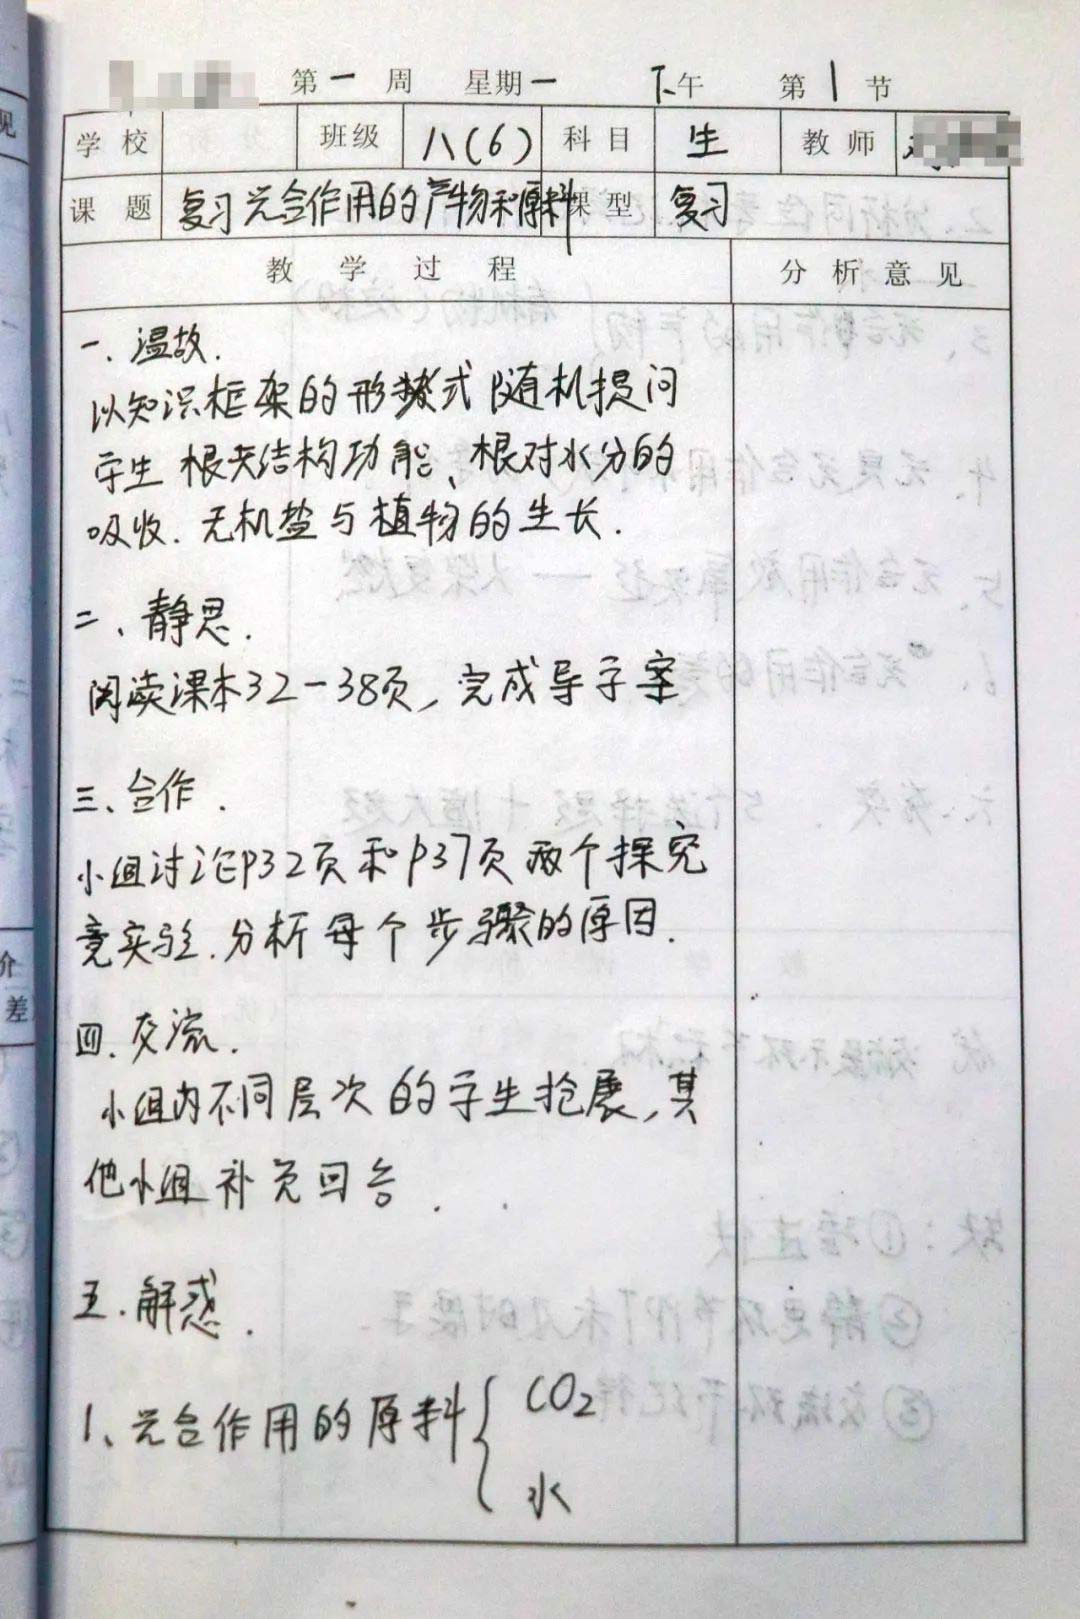 第一周 星期一 下午 第1节
学校 班级 八(6) 科目 生 教师
课题 复习光合作用的产物和原料 课型 复习
教学过程 分析意见
一.温故.
以知识框架的形式随机提问
学生根尖结构功能、根对水分的
吸收.无机盐与植物的生长.
二、静思.
阅读课本32-38页,完成导学案
三、合作.
小组讨论P32页和P37页两个探究
竟实验.分析每个步骤的原因.
四.交流.
小组内不同层次的学生抢展,其
他小组补充回答.
五.解惑.
1、光合作用的原料{CO2
水
见
介
差